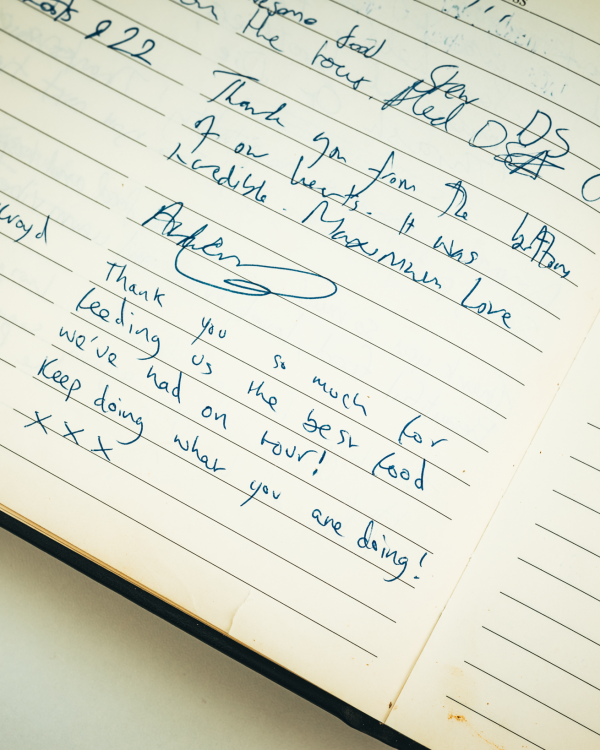 & 22
food
on the tour.
Thank you from the bottom
of our hearts. It was
incredible. Maximum Love
Thank you so much for
feeding us the best food
we've had on tour!
Keep doing what you are doing!
x x x